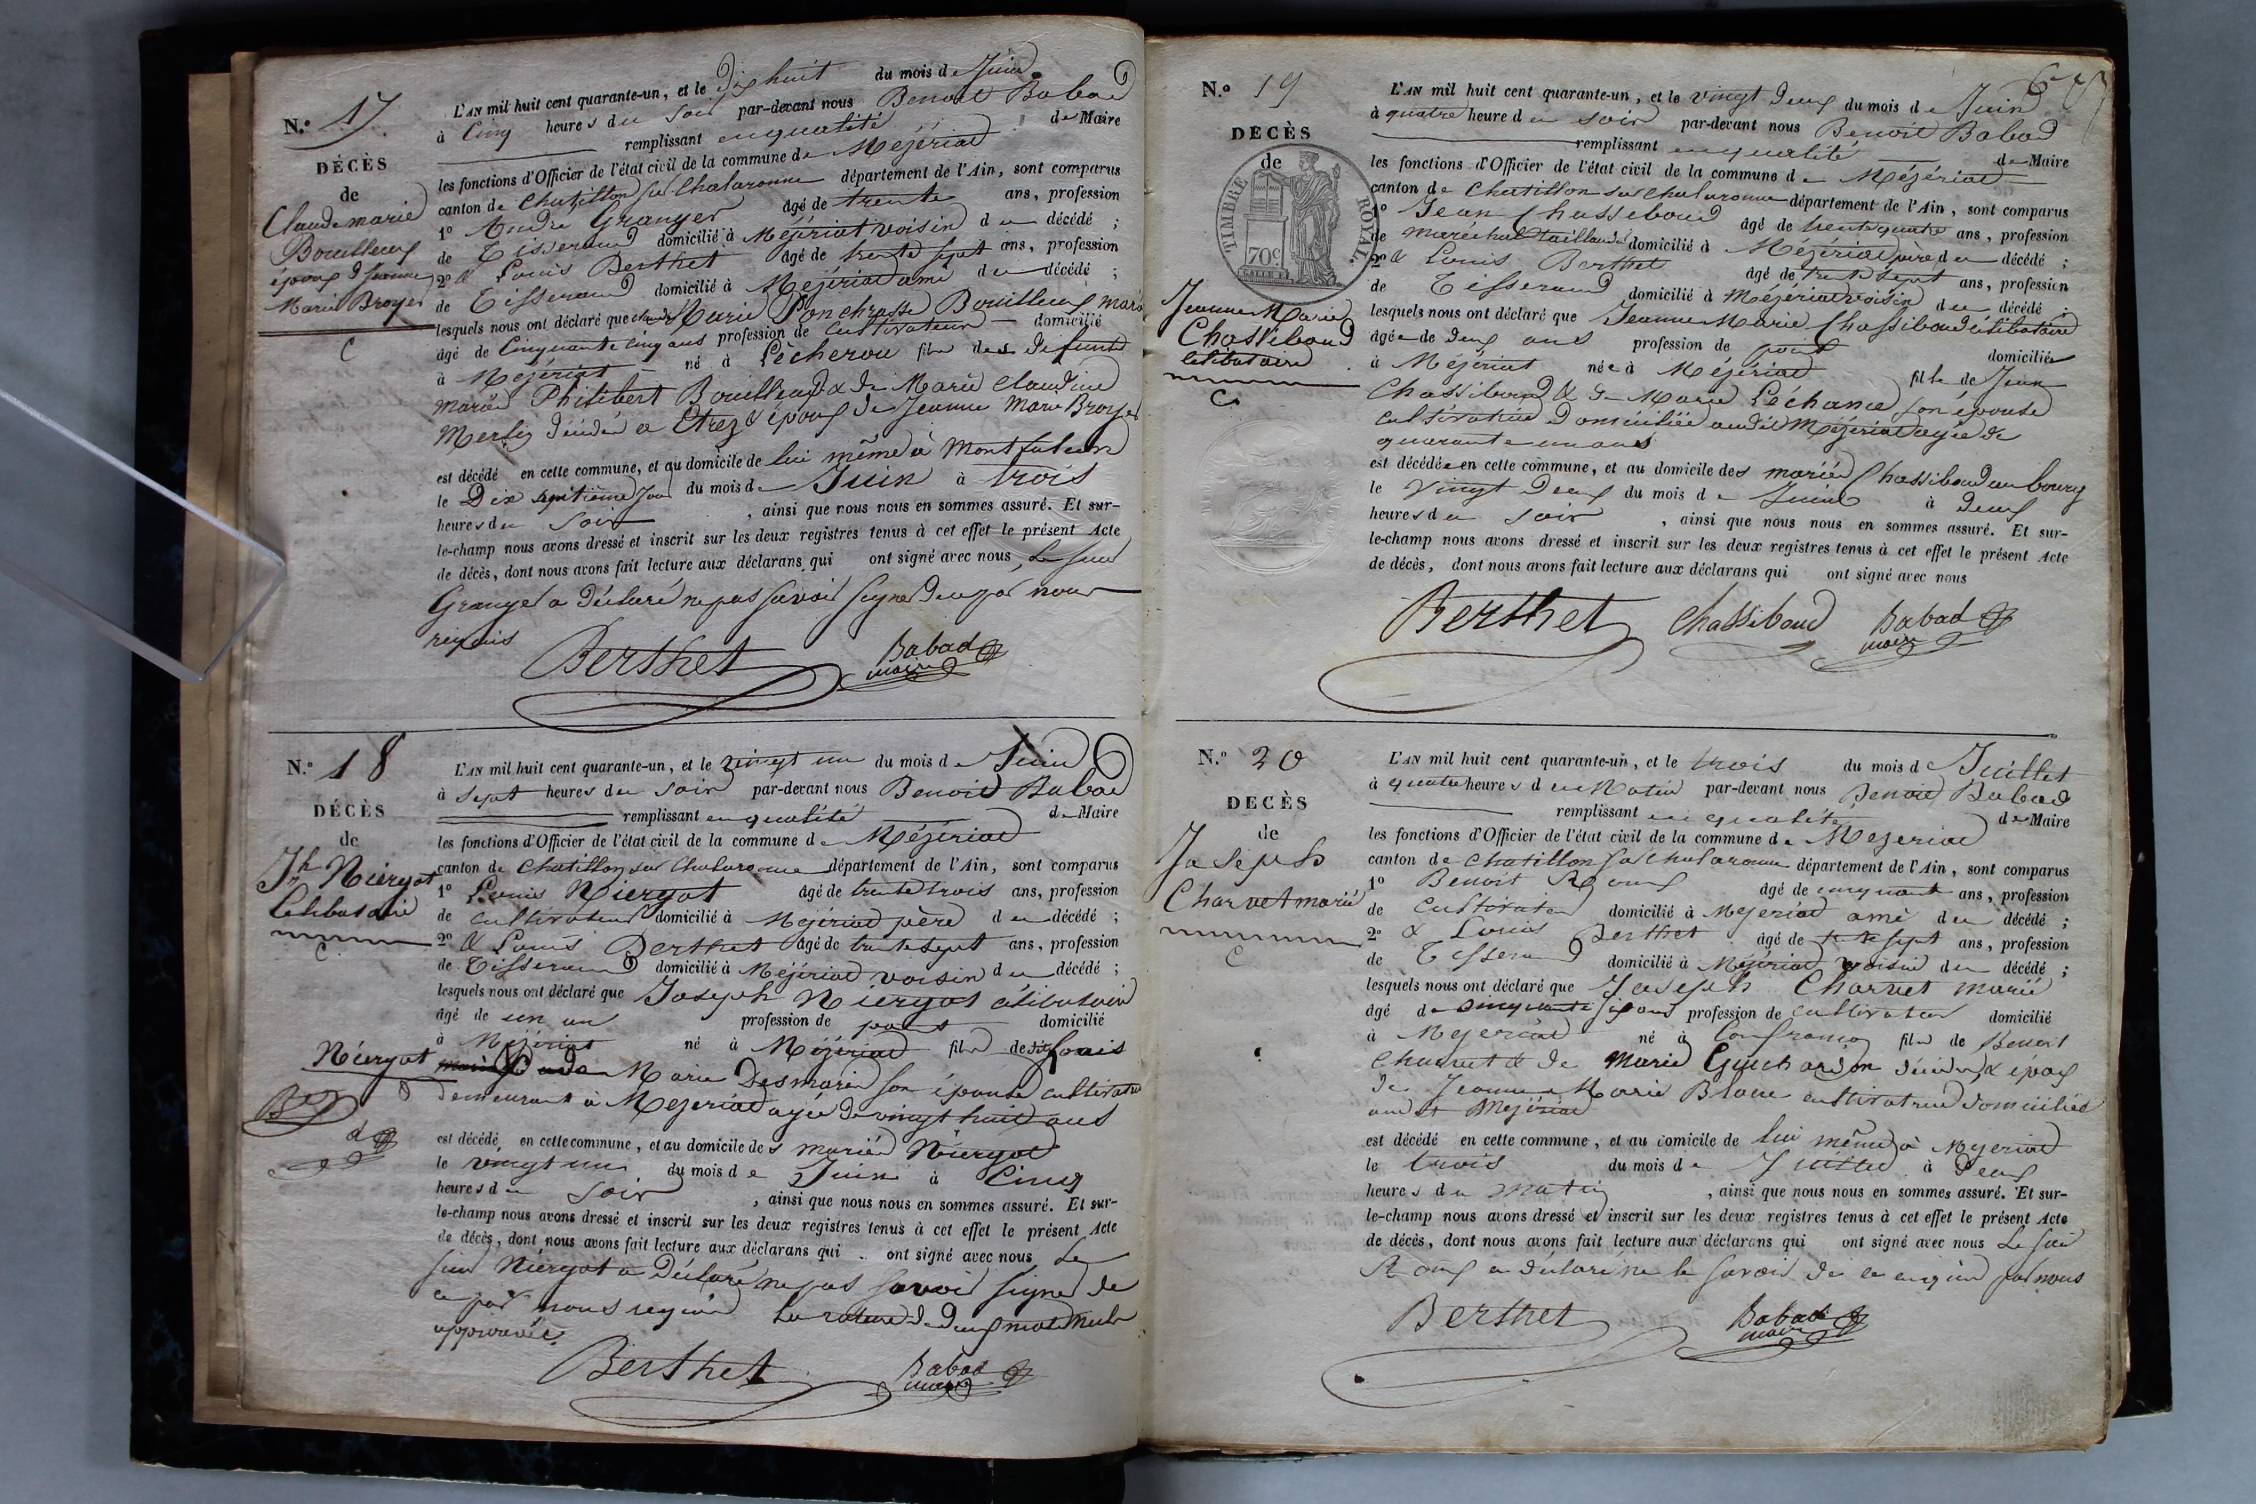 N.º 17
DÉCÈS
de
Claude marie
Bouilloux
époux d Jeanne
Marie Broyer
C
L'AN mil huit cent quarante-un, et le Dix huit du mois de Juin
à Cinq heures du soir par-devant nous Benoit Babad
remplissant en qualité de Maire
les fonctions d'Officier de l'état civil de la commune de Mézériat
canton de Chatillon sur Chalaronne département de l'Ain, sont comparus
1º André Granger âgé de trente ans, profession
de Tisserand domicilié à Mézériat voisin du décédé ;
2º & Louis Berthet âgé de trente sept ans, profession
de Tisserand domicilié à Mézériat ami du décédé ;
lesquels nous ont déclaré que Claude Marie Bouilloux marié
âgé de Cinquante cinq ans profession de Cultivateur domicilié
à Mézériat né à Lècherou fils des défunts
mariés Philibert Bouilloux & de Marie Claudine
Merle décédés à Etrez & époux de Jeanne Marie Broyer
est décédé en cette commune, et au domicile de lui même à Montfalcon
le Dix septième jour du mois de Juin à trois
heures du soir, ainsi que nous nous en sommes assuré. Et sur-
le-champ nous avons dressé et inscrit sur les deux registres tenus à cet effet le présent Acte
de décès, dont nous avons fait lecture aux déclarans qui ont signé avec nous, Le sieur
Granger a déclaré ne pas savoir signer de ce par nous
requis
Berthet Babad
maire
N.º 18
DÉCÈS
de
Jh Niergot
Celibataire
C
Niergot
L'AN mil huit cent quarante-un, et le vingt un du mois de Juin
à sept heures du soir par-devant nous Benoit Babad
remplissant en qualité de Maire
les fonctions d'Officier de l'état civil de la commune de Mézériat
canton de Chatillon sur Chalaronne département de l'Ain, sont comparus
1º Louis Niergot âgé de trente trois ans, profession
de cultivateur domicilié à Mézériat père du décédé ;
2º & Louis Berthet âgé de trente sept ans, profession
de Tisserand domicilié à Mézériat voisin du décédé ;
lesquels nous ont déclaré que Joseph Niergot célibataire
âgé de un an profession de point domicilié
à Mézériat né à Mézériat fils de Louis
Marie Desmaris son épouse cultivatrice
demeurant à Mézériat agée de vingt huit ans
est décédé en cette commune, et au domicile des mariés Niergot
le vingt un du mois de Juin à Cinq
heures du soir, ainsi que nous nous en sommes assuré. Et sur-
le-champ nous avons dressé et inscrit sur les deux registres tenus à cet effet le présent Acte
de décès, dont nous avons fait lecture aux déclarans qui ont signé avec nous Le
sieur Niergot a déclaré ne pas savoir signer de
ce par nous requis La rature de deux mots nuls
approuvée
Berthet Babad
maire
N.º 19
DECÈS
de
TIMBRE ROYAL
70c
Jeanne Marie
Chassiboud
celibataire
C
L'AN mil huit cent quarante-un, et le vingt deux du mois de Juin
à quatre heures du soir par-devant nous Benoit Babad
remplissant en qualité de Maire
les fonctions d'Officier de l'état civil de la commune de Mézériat
canton de Chatillon sur Chalaronne département de l'Ain, sont comparus
1º Jean Chassiboud âgé de trente quatre ans, profession
de maréchal taillandier domicilié à Mézériat père du décédé ;
2º & Louis Berthet âgé de trente sept ans, profession
de Tisserand domicilié à Mézériat voisin du décédé ;
lesquels nous ont déclaré que Jeanne Marie Chassiboud célibataire
âgée de deux ans profession de point domiciliée
à Mézériat née à Mézériat fille de Jean
Chassiboud & de Marie Léchance son épouse
cultivatrice domiciliée audit Mézériat agée de
quarante un ans
est décédée en cette commune, et au domicile des mariés Chassiboud au bourg
le vingt deux du mois de Juin à deux
heures du soir, ainsi que nous nous en sommes assuré. Et sur-
le-champ nous avons dressé et inscrit sur les deux registres tenus à cet effet le présent Acte
de décès, dont nous avons fait lecture aux déclarans qui ont signé avec nous
Berthet Chassiboud Babad
maire
N.º 20
DECÈS
de
Joseph
Charvet marié
C
L'AN mil huit cent quarante-un, et le trois du mois de Juillet
à quatre heures du Matin par-devant nous Benoit Babad
remplissant en qualité de Maire
les fonctions d'Officier de l'état civil de la commune de Mézériat
canton de Chatillon sur Chalaronne département de l'Ain, sont comparus
1º Benoit Roux âgé de cinquante ans, profession
de Cultivateur domicilié à Mézériat ami du décédé ;
2º & Louis Berthet âgé de trente sept ans, profession
de Tisserand domicilié à Mézériat voisin du décédé ;
lesquels nous ont déclaré que Joseph Charvet marié
âgé de cinquante six ans profession de Cultivateur domicilié
à Mézériat né à Confrançon fils de Benoit
Charvet & de Marie Guichardon décédés, & époux
de Jeanne Marie Blanc cultivatrice domiciliée
audit Mézériat
est décédé en cette commune, et au domicile de lui même à Mézériat
le trois du mois de Juillet à Deux
heures du matin, ainsi que nous nous en sommes assuré. Et sur-
le-champ nous avons dressé et inscrit sur les deux registres tenus à cet effet le présent Acte
de décès, dont nous avons fait lecture aux déclarans qui ont signé avec nous Le sieur
Roux a déclaré ne le savoir de ce enquis par nous
Berthet Babad
maire